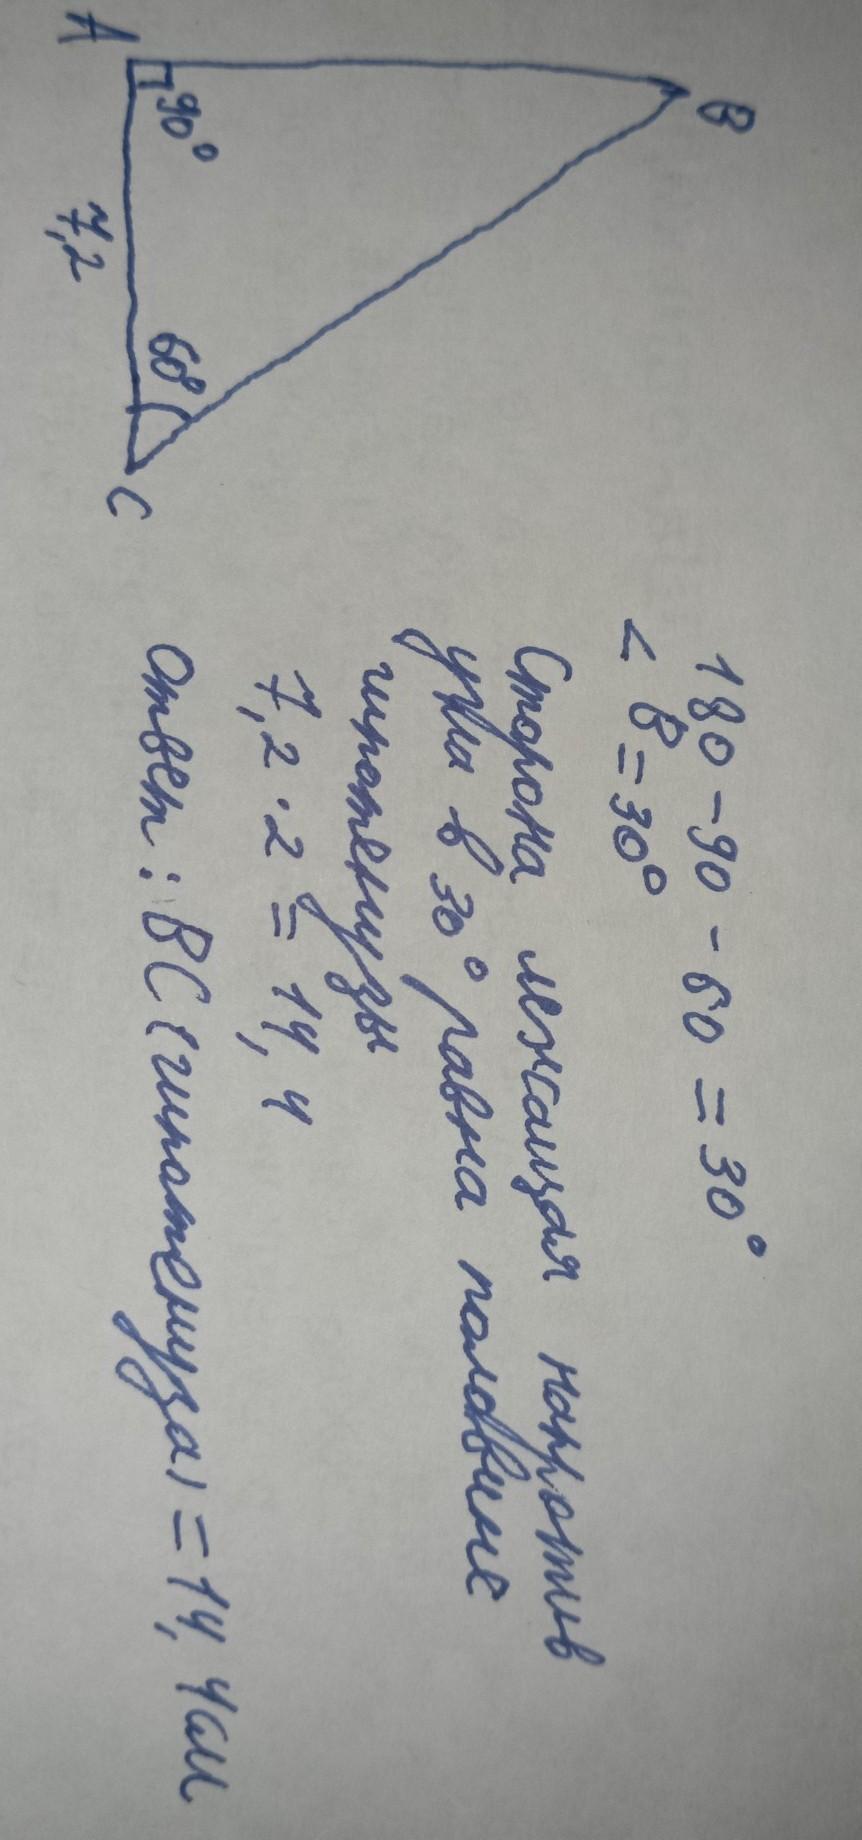 A
B
90°
7,2
60°
C
180-90-60=30°
< B=30°
Сторона лежащая напротив
угла в 30° равна половине
гипотенузы
7,2·2=14,4
Ответ: BC (гипотенуза)=14,4см